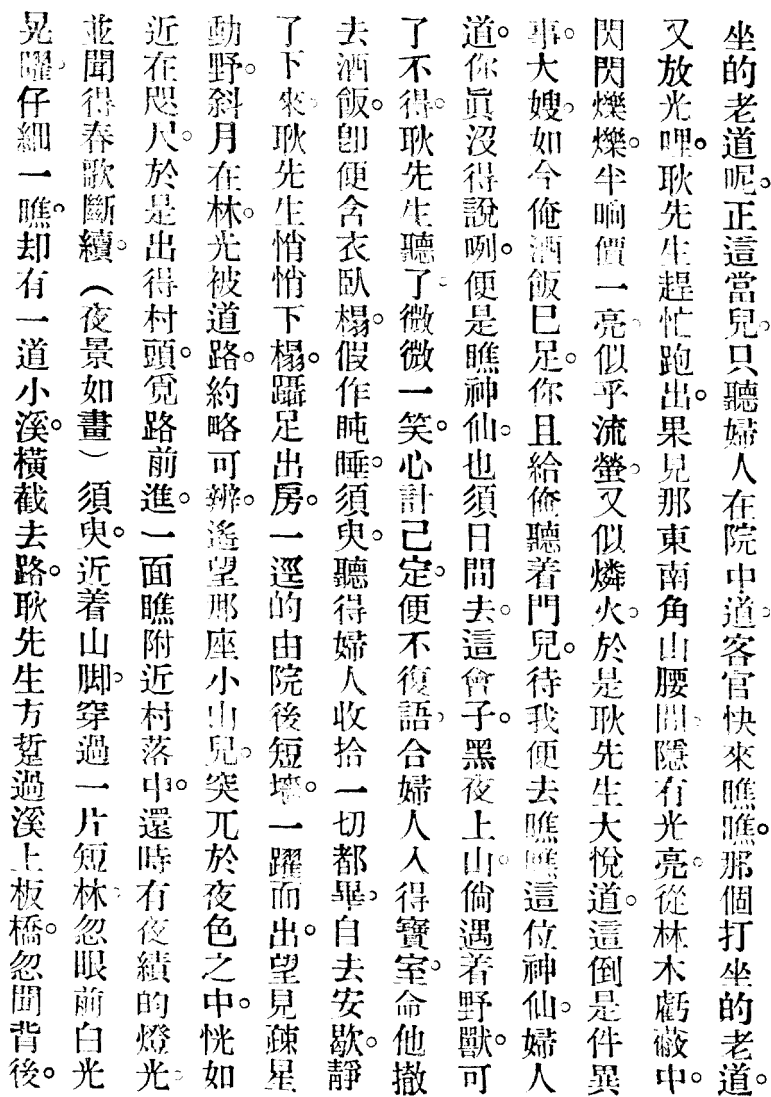 坐的老道呢。正這當兒。只聽婦人在院中道。客官快來瞧瞧。那個打坐的老道。
又放光哩。耿先生趕忙跑出。果見那東南角山腰間。隱有光亮。從林木虧蔽中。
閃閃爍爍。半晌價一亮。似乎流螢。又似燐火。於是耿先生大悅道。這倒是件異
事。大嫂。如今俺酒飯已足。你且給俺聽着門兒。待我便去瞧瞧這位神仙。婦人
道。你眞沒得說咧。便是瞧神仙。也須日間去。這會子。黑夜上山。倘遇着野獸。可
了不得。耿先生聽了。微微一笑。心計已定。便不復語。合婦人入得寳室。命他撤
去酒飯。卽便含衣臥榻。假作盹睡。須臾。聽得婦人收拾一切都畢。自去安歇。靜
了下來。耿先生悄悄下榻。躡足出房。一逕的由院後短墻。一躍而出。望見疎星
動野。斜月在林。光被道路。約略可辨。遙望那座小山兒。突兀於夜色之中。恍如
近在咫尺。於是出得村頭。覓路前進。一面瞧附近村落中。還時有夜績的燈光。
並聞得春歌斷續。（夜景如畫）須臾。近着山脚。穿過一片短林。忽眼前白光
晃曜。仔細一瞧。却有一道小溪。橫截去路。耿先生方踅過溪上板橋。忽聞背後。